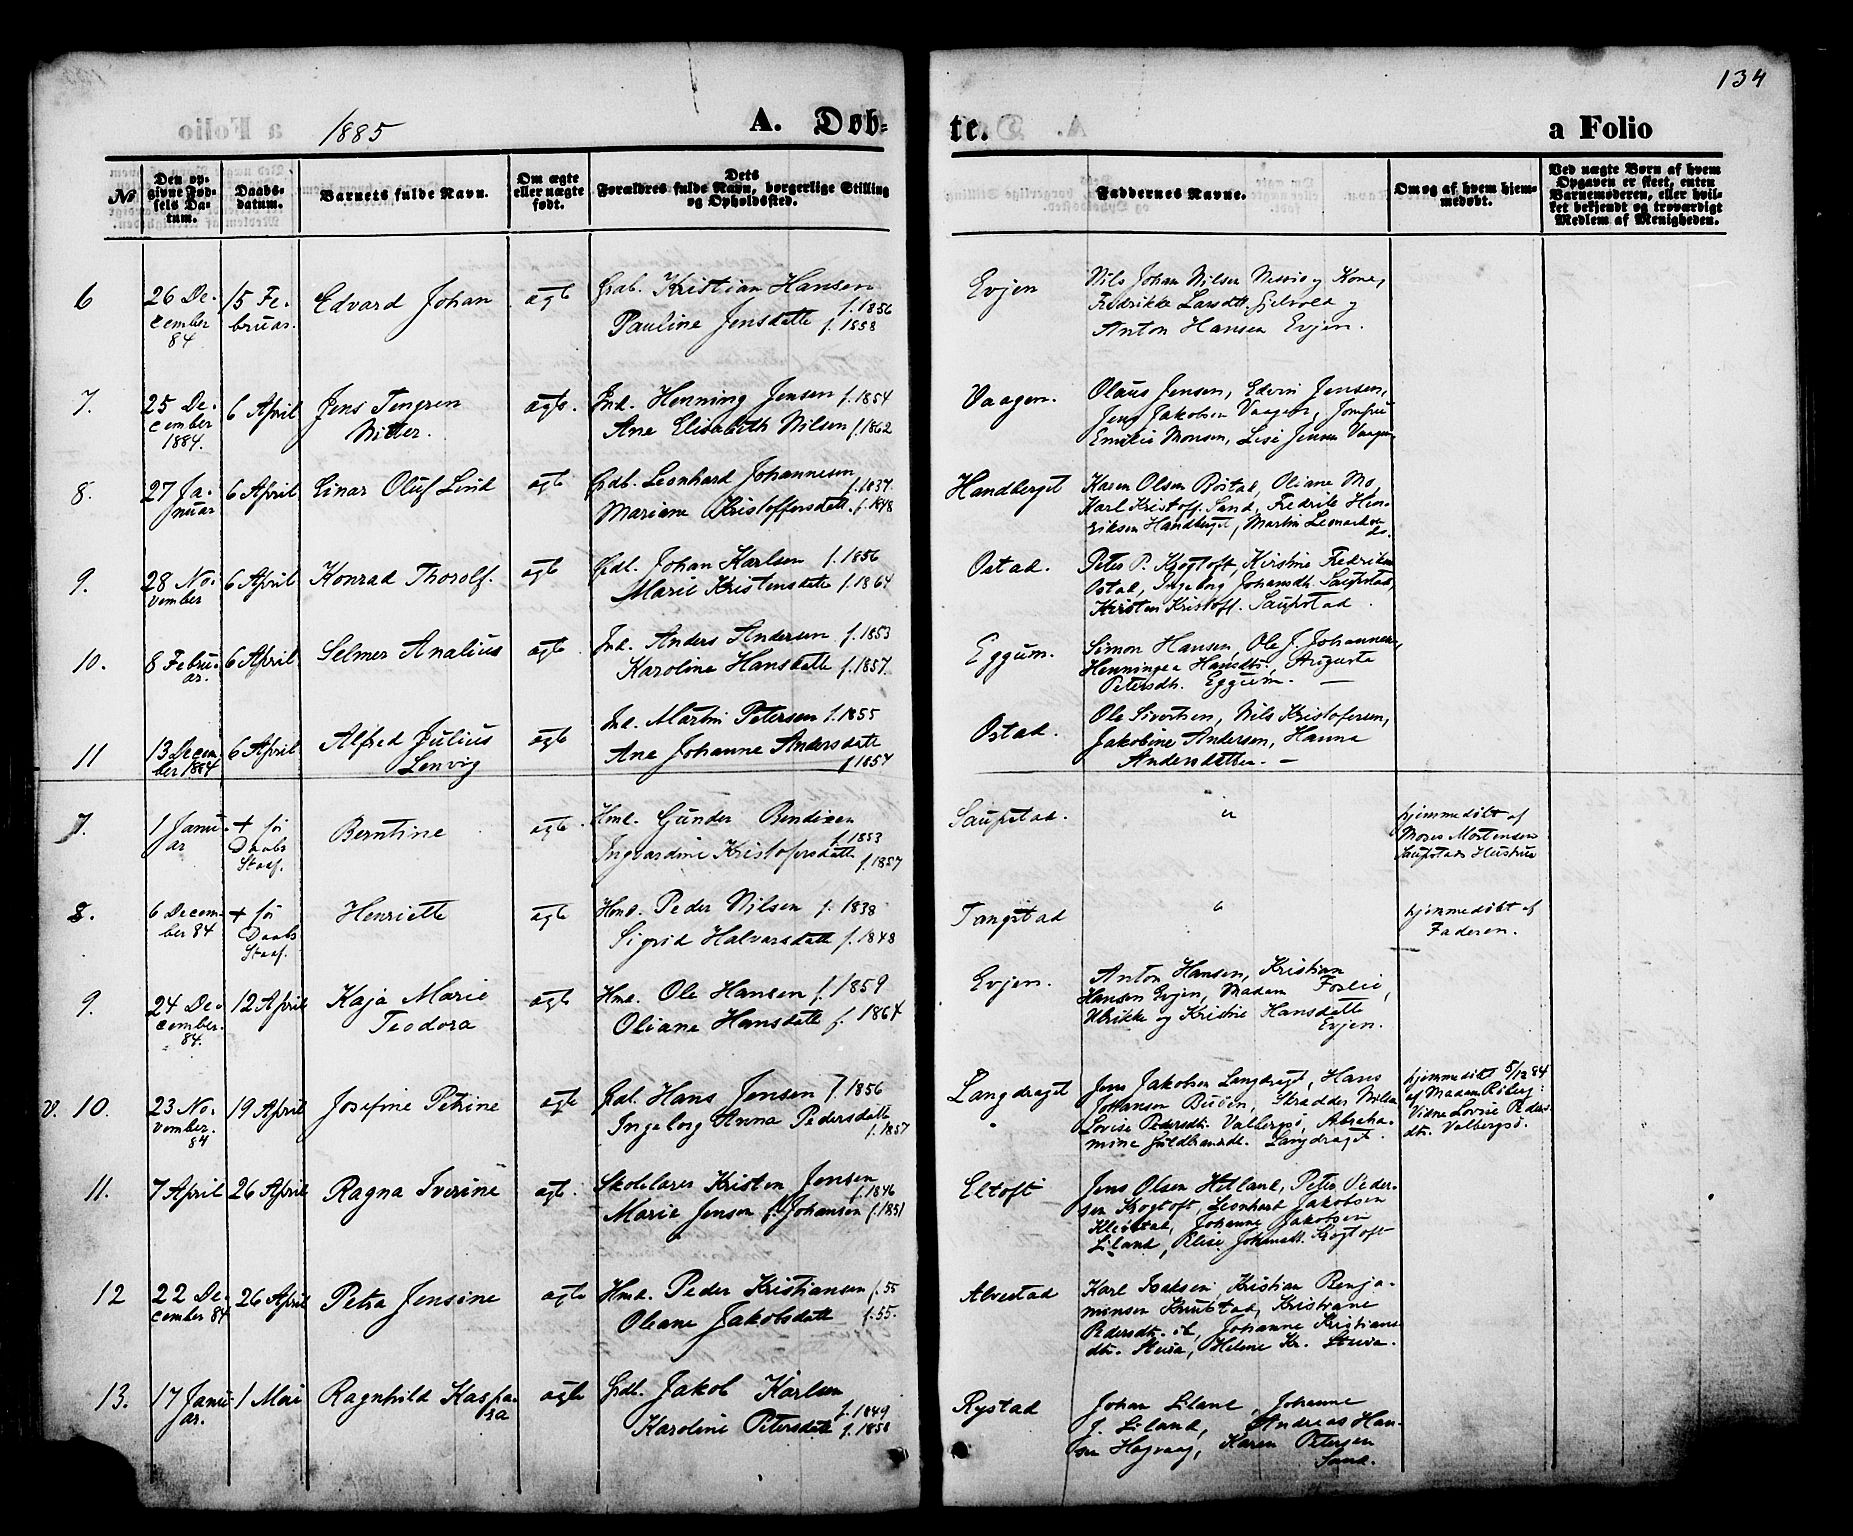 134
a Folio
1885
A. Døb-
te.
a Folio
No
Den op-
givne Fød-
sels Da-
tum.
Daabs-
datum.
Barnets fulde Navn.
Om ægte
eller uægte
født.
Dets
Forældres fulde Navn, borgerlige Stilling
og Opholdssted.
Faddernes Navne.
Om og af hvem hjem-
medøbt.
Ved uægte Børn af hvem
Opgaven er skeet, enten
Barnemoderen, eller hvil-
ket bekjendt og troværdigt
Medlem af Menigheden.
6
26 De-
cember
84
15 Fe-
bruar.
Edvard Johan
ægte
Kristian Hansen
f. 1856
Pauline Jensdatte f. 1858
Evjen
Nils Johan Nilsen og Kone,
Fredrikke Larsdtt. og
Anton Hansen Evjen.
7.
25 De-
cember
1884.
6 April
Jens Tengren
Nitter.
ægte.
Ind. Henning Jensen f. 1854
Ane Elisabeth Nilsen f. 1862
Vaagen.
Olaus Jensen, Edvin Jensen,
Jens Jakobsen Vaagen, Jomfru
Emilie Monsen, Lise Jensen Vaagen
8.
27 Ja-
nuar
6 April
Einar Oluf Lind
ægte
Grdb. Leonhard Johannesen
f. 1837.
Mariane Kristoffersdatt. f. 1848
Handberget
Karen Olsen Bøstad, Oliane Mo,
Karl Kristoff. Sand, Fredrik Hen-
riksen Handberget, Martin Leonardsen
ds.
9.
28 No-
vember
6 April
Konrad Thorolf.
ægte
Johan Karlsen f. 1856
Marie Kristensdatte f. 1864
Ostad.
Peter P. Krogtoft, Kirstine Fredriksen
Ostad, Ingeborg Johansdt. Saupstad,
Kirsten Kristoff. Saupstad.
10.
8 Febru-
ar.
6 April
Selmer Analius
ægte
Ind. Anders Andersen f. 1853
Karoline Hansdatte f. 1857.
Eggum.
Simon Hansen, Ole J. Johannesen,
Henningea Hansdt., Augusta
Petersdt. Eggum. —
11
13 Decem-
ber 1884
6 April
Alfred Julius
Lenvig
ægte
Ind. Martin Petersen f. 1855
Ane Johanne Andersdatte
f. 1854
Ostad.
Ole Sivertsen, Nils Kristofersen,
Jakobine Andersen, Hanna
Andersdatter. —
7.
1 Janu-
ar
+ før
Daabs
Stadf.
Berntine
ægte.
Hmd. Gunder Bendixen
f. 1853
Ingvardine Kristofersdatte
f. 1857
Saupstad.
"
hjemmedøbt af
Moses Mortensen
Saupstads Hustru
8.
6 Decem-
ber 84
+ før
Daabs
Stadf.
Henriette
ægte
Hmd. Peder Nilsen f. 1838
Sigrid Halvarsdatt f. 1848
Tangstad
"
hjemmedøbt af
Faderen.
9.
24 De-
cember.
84.
12 April
Kaja Marie
Teodora
ægte
Hmd. Ole Hansen f. 1859
Oliane Hansdatte f. 1864
Evjen.
Anton Hansen, Kristian
Hansen Evjen, Madam Foslie,
Ulrikke og Kristine Hansdatte
Evjen.
V. 10.
23 No-
vember.
84
19 April
Josefine Petrine
ægte
Hans Jensen f. 1856
Ingeborg Anna Pedersdatte
f. 1857
Langdraget
Jens Jakobsen Langdraget, Hans
Johansen Buøen, Skrædder Nilsen
Lovise Pedersdt. Valbergsø, Abraha-
mine Guldbrandt. Langdraget.
hjemmedøbt 5/12 84
af Madam Riberg
Vidne Lovise Peders
dt. Valbergsø.
11.
7 April
26 April
Ragna Iverine
ægt.
Skolelærer Kristen Jensen
f. 1846
Marie Jensen f. Johansen f. 1851
Eltoft
Jens Olsen Hetland, Peter Peder-
sen Krogtoft, Leonhard Jakobsen
Kleivstad, Johanne Jakobsen
Liland, Elise Johansdt. Krogtoft
12
22 De-
cember 84
26 April
Petra Jensine
ægte
Hmd. Peder Kristiansen f. 55
Oliane Jakobsdatt f. 55.
Alvestad
Karl Isaksen, Kristian Benja-
minsen Knutstad, Kristiane
Pedersdt. ib, Johanne Kristians
dt. Steira, Helene Kr. Steira.
13.
17 Janu-
ar.
1 Mai
Ragnhild Kaspa-
ra
ægte
Grdb. Jakob Karlsen
f. 1849
Karoline Petersdatt f. 1850
Rystad
Johan Liland, Johanne
J. Liland, Andreas Han-
sen Hagvaag, Karen Petersen
Sand.